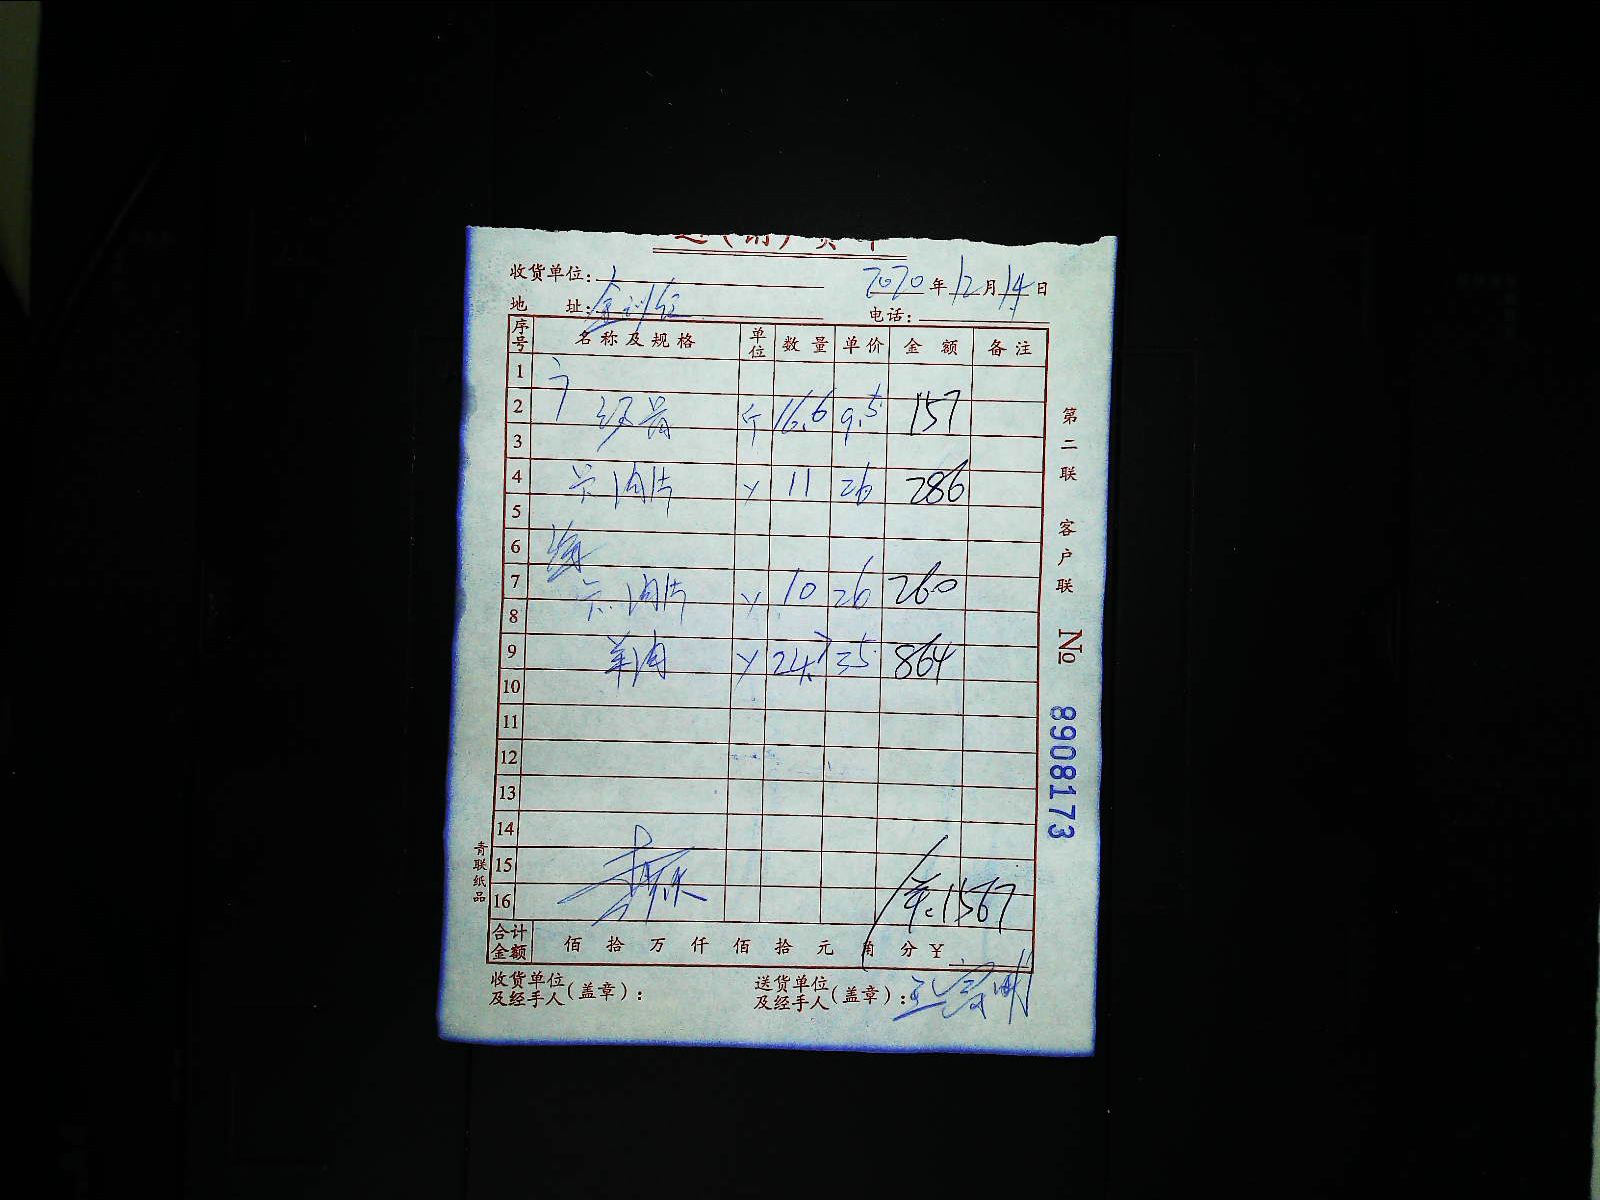 送(销)货单
收货单位:
2020年12月14日
地 址:
电话:
序号 名称及规格 单位 数量 单价 金额 备注
1
2 斤 16.6 9.5 157
3
4 肉片 y 11 26 286
5
6
7 肉片 y 10 26 260
8
9 羊肉 y 24.7 35 864
10
11
12
13
14
15
16 1567
合计金额 佰 拾 万 仟 佰 拾 元 角 分 ¥
收货单位及经手人(盖章):
送货单位及经手人(盖章):
第二联 客户联
№ 8908173
青联纸品